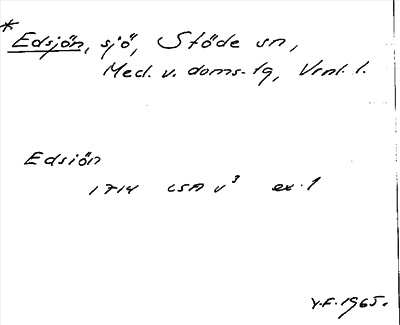 * Edsjön, sjö, Stöde sn,
Med. v. doms-lg, Vrnl. l.
Edsiön
1714 LSA v³ ex. 1
Y.F. 1965.